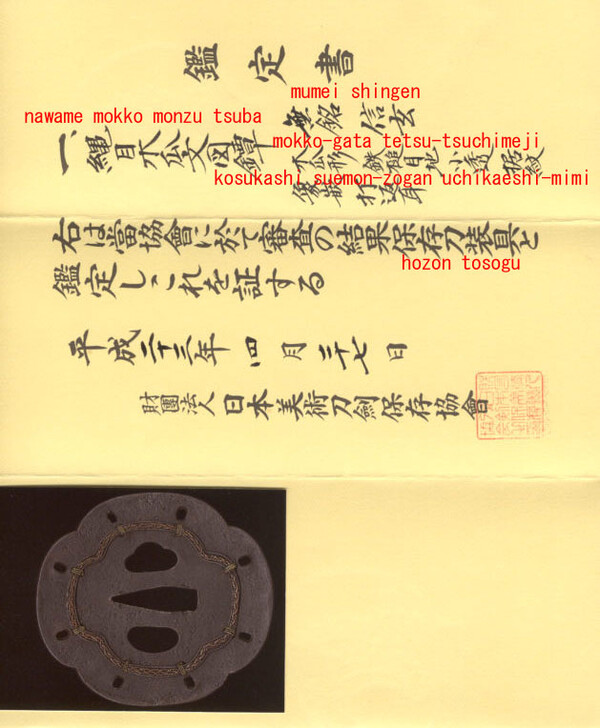 鑑定書
mumei shingen
無銘 信玄
nawame mokko monzu tsuba
一、縄目木瓜文図鐔
mokko-gata tetsu-tsuchimeji
木瓜形 鉄槌目地 小透 据紋
kosukashi suemon-zogan uchikaeshi-mimi
象嵌 打返耳
右は當協會に於て審査の結果保存刀装具と
hozon tosogu
鑑定しこれを証する
平成二十三年四月二十七日
財團法人 日本美術刀劍保存協會